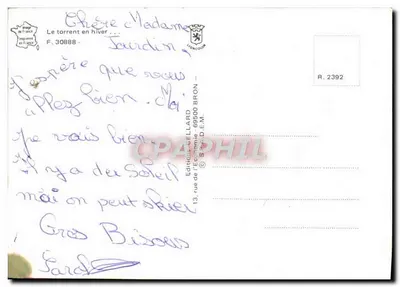 Le torrent en hiver
F. 30888 -
Chère Madame
Jardin,
j'espère que vous
allez bien. Moi
je vais bien
il y a du soleil
mai on peut skier
Gros Bisous
R. 2392
13, rue de l'Economie 69500 BRON -
CPAPHIL